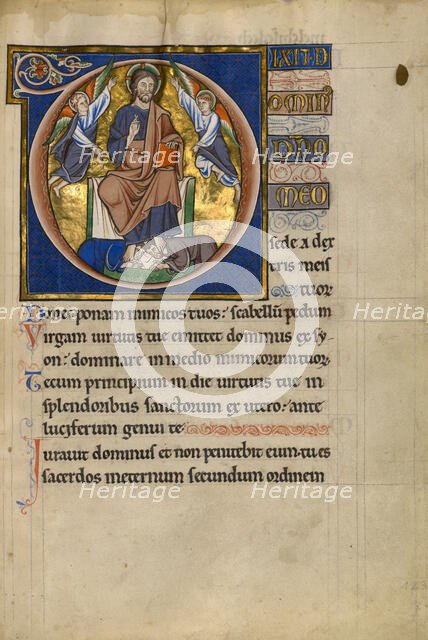 IXIT D
OMIN
DNO
MEO
sede a dex
tris meis
tuos: scabellu pedum
ponam inimicos
Virgam virtutis tue emittet dominus ex sy
on: dominare in medio inimicorum tuor
Tecum principium in die virtutis tue in
splendoribus sanctorum ex utero: ante
luciferum genui te
Iuravit dominus et non penitebit eum: tu es
sacerdos ineternum secundum ordinem
Heritage
Heritage
Heritage
Heritage
Heritage
Heritage
Images